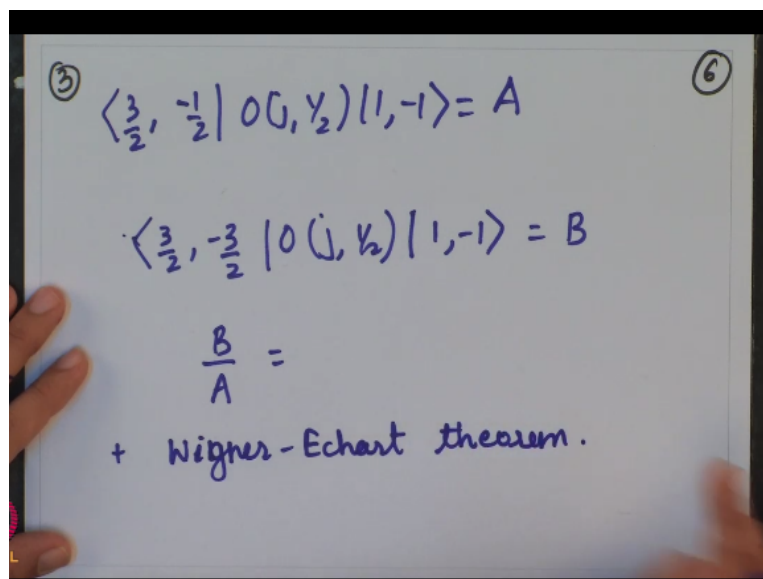 ③ ⑥
⟨3/2, -1/2 | O(j, 1/2) | 1, -1⟩ = A
⟨3/2, -3/2 | O(j, 1/2) | 1, -1⟩ = B
B/A =
+ Wigner-Echart theorem.
L